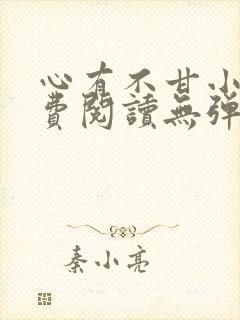 心有不甘小
費閱讀無彈
秦小亮